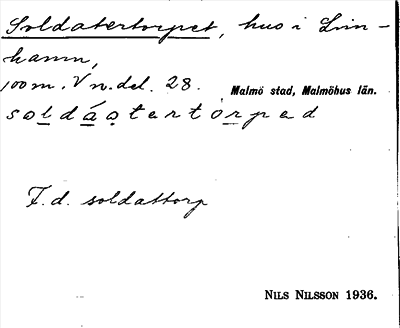 Soldatertorpet, hus i Lim-
hamn,
100 m. V n. del. 28. Malmö stad, Malmöhus län.
soldástertòrped
F. d. soldattorp
NILS NILSSON 1936.